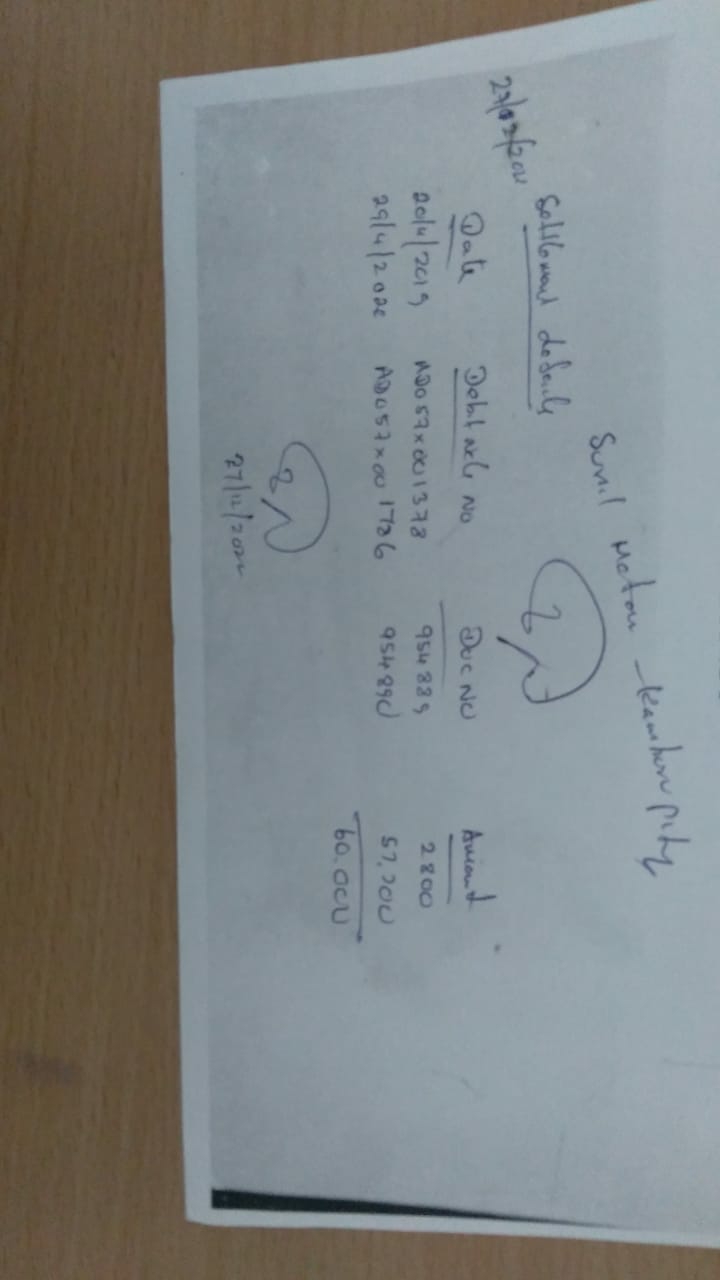 Sunil Motors - Kamburupitiya
27/12/2022 Settlement details
Date Debit Note No Doc No Amount
20/4/2019 AD057X001378 954889 2800
29/4/2020 AD057X001786 954890 57,200
60.000
27/12/2022